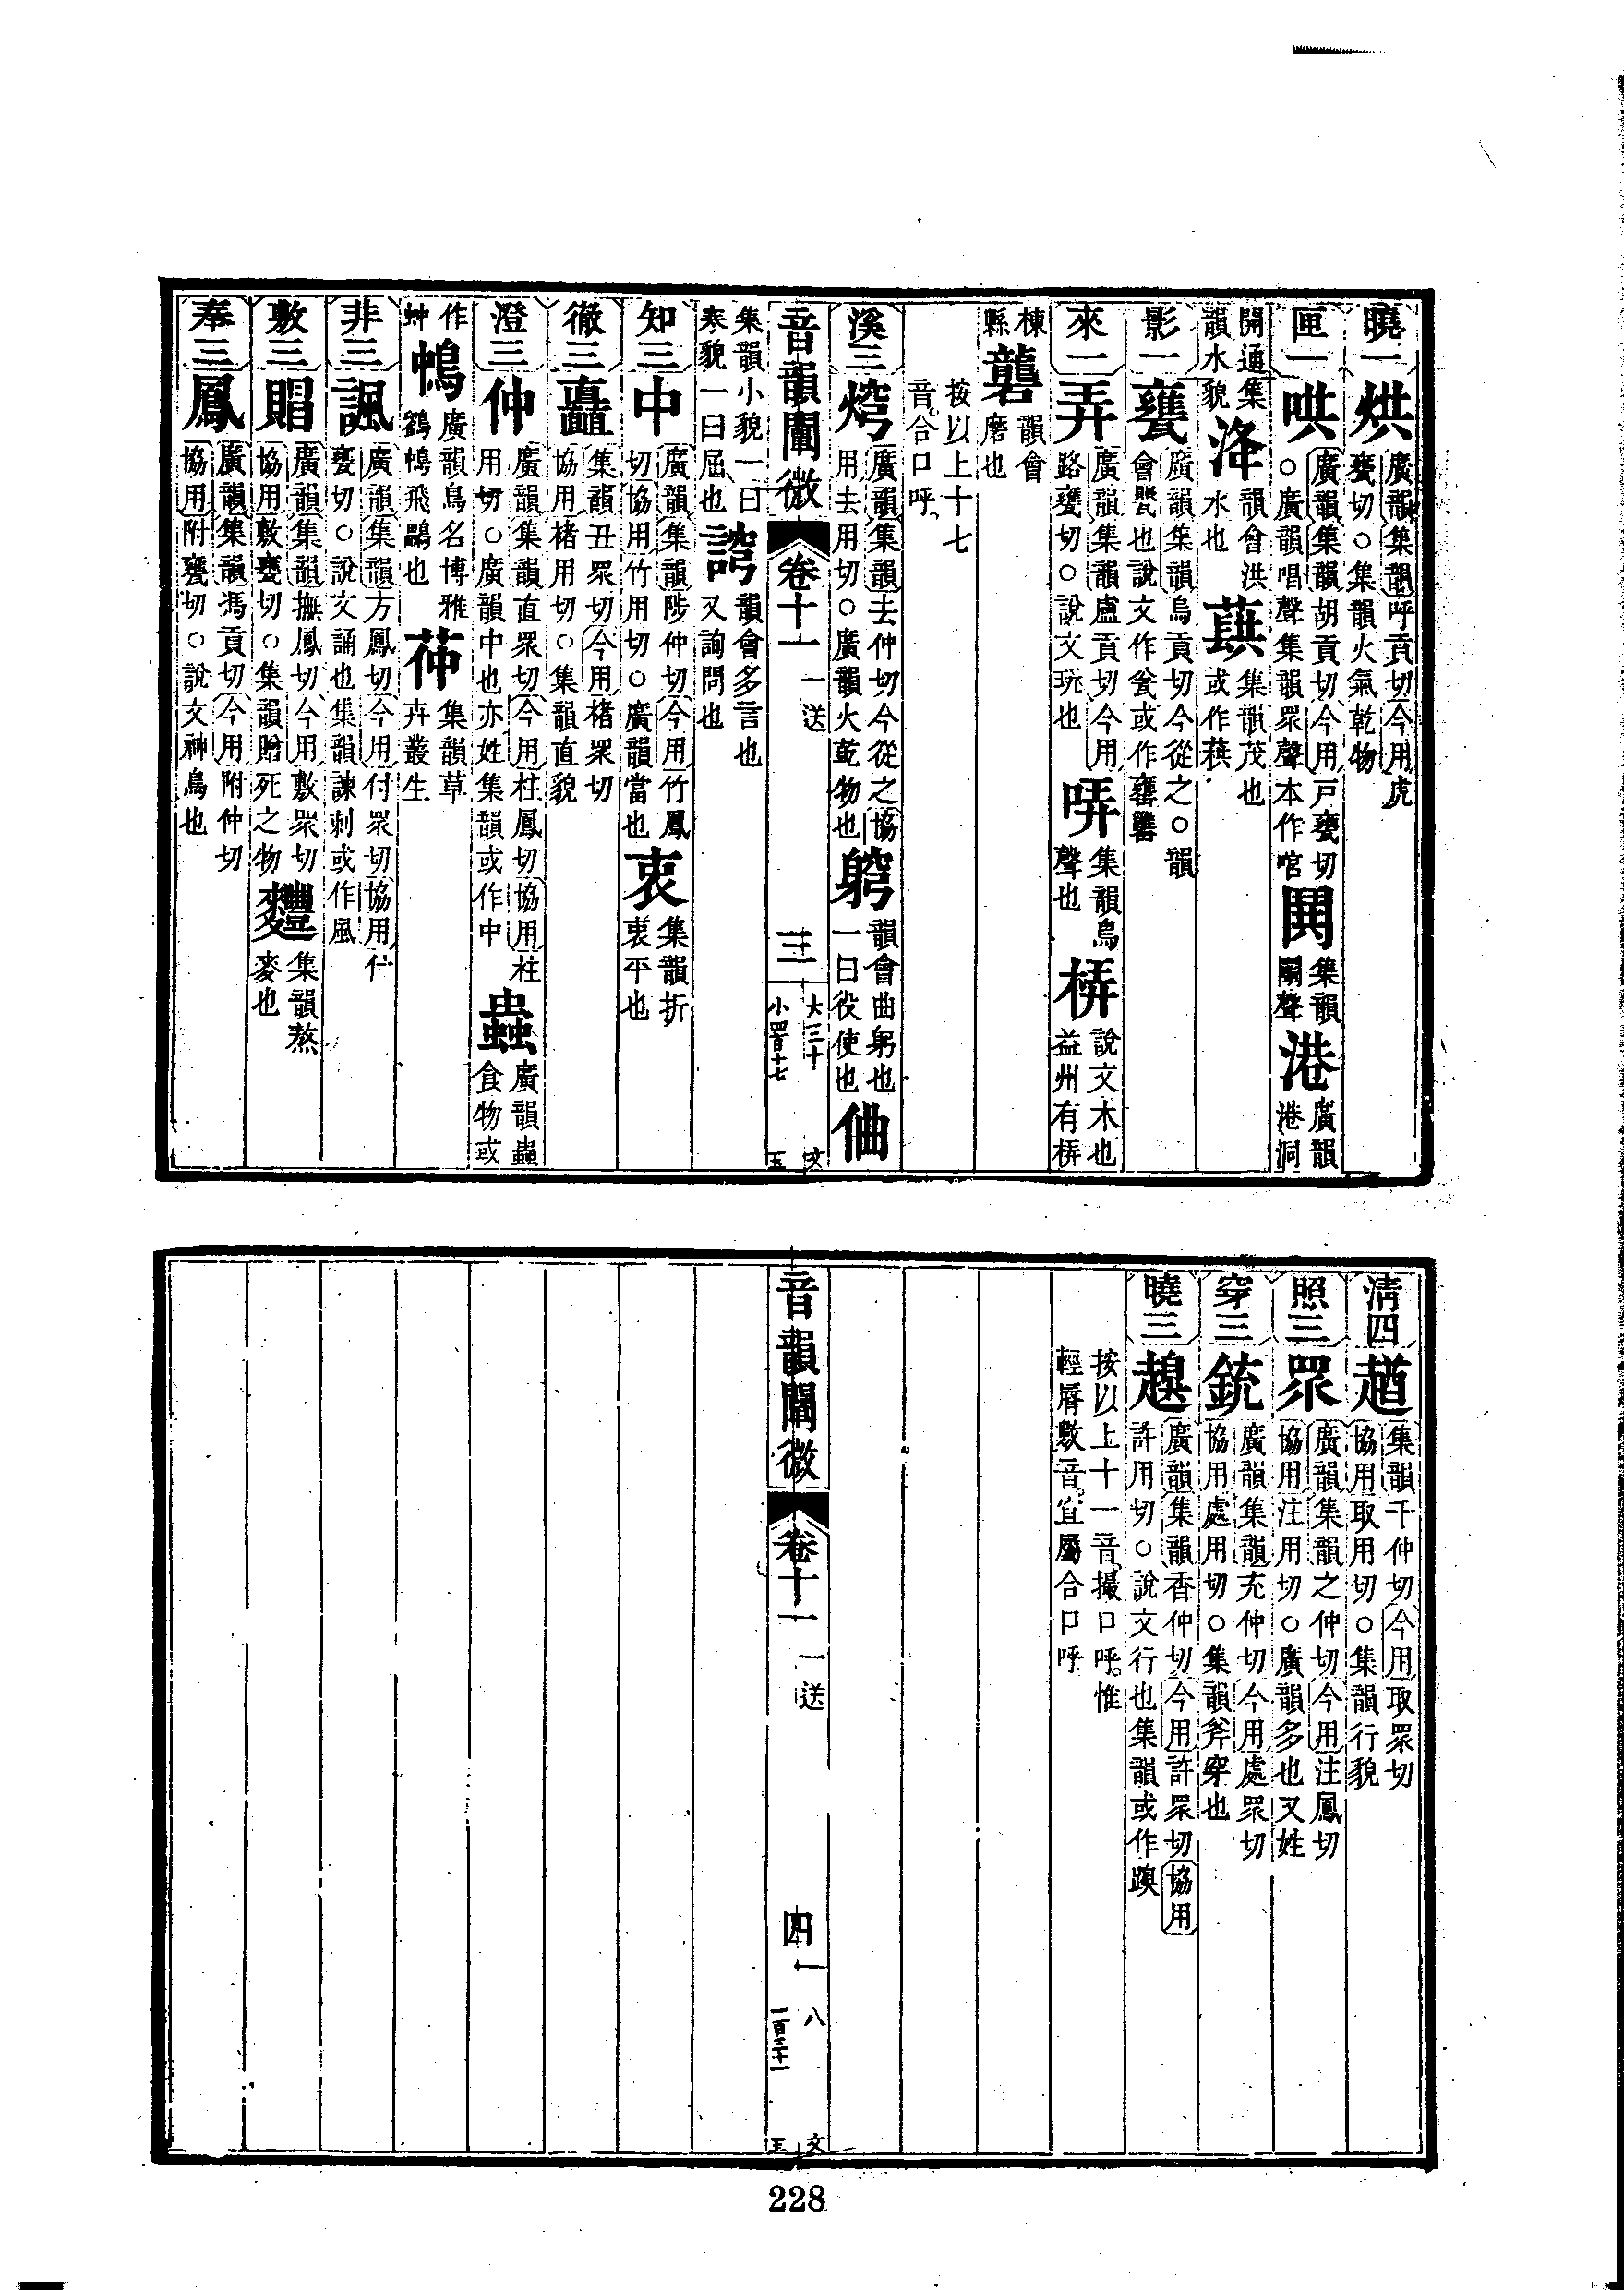 曉一 烘 廣韻集韻呼貢切今用虎
甕切○集韻火氣乾物
匣一 哄 廣韻集韻胡貢切今用戸甕切
○廣韻唱聲集韻眾聲本作哅 鬨 集韻
鬭聲 港 廣韻
港洞
開通集
韻水貌 洚 韻會洪
水也 蕻 集韻茂也
或作䔈
影一 甕 廣韻集韻烏貢切今從之○韻
會甖也說文作瓮或作罋
來一 弄 廣韻集韻盧貢切今用
路甕切○說文玩也 哢 集韻鳥
聲也 梇 說文木也
益州有梇
棟
縣 礱 韻會
磨也
按以上十七
音合口呼
溪三 焪 廣韻集韻去仲切今從之協
用去用切○廣韻火乾物也 躬 韻會曲躬也
一曰役使也 㑋
音韻闡微 卷十一 一送 三 大三十 小四百十七 文 五
集韻小貌一曰
寒貌一曰屈也 䛪 韻會多言也
又詢問也
知三 中 廣韻集韻陟仲切今用竹鳳
切協用竹用切○廣韻當也 衷 集韻折
衷平也
徹三 矗 集韻丑眾切今用楮眾切
協用楮用切○集韻直貌
澄三 仲 廣韻集韻直眾切今用柱鳳切協用柱
用切○廣韻中也亦姓集韻或作中 蟲 廣韻蟲
食物或
作
蚛 䳋 廣韻鳥名博雅
鶴䳋飛鸓也 茽 集韻草
卉叢生
非三 諷 廣韻集韻方鳳切今用付眾切協用付
甕切○說文誦也集韻諫刺或作風
敷三 賵 廣韻集韻撫鳳切今用敷眾切
協用敷甕切○集韻贈死之物 麷 集韻熬
麥也
奉三 鳳 廣韻集韻馮貢切今用附仲切
協用附甕切○說文神鳥也
清四 趥 集韻千仲切今用取眾切
協用取用切○集韻行貌
照三 眾 廣韻集韻之仲切今用注鳳切
協用注用切○廣韻多也又姓
穿三 銃 廣韻集韻充仲切今用處眾切
協用處用切○集韻斧穿也
曉三 趨 廣韻集韻香仲切今用許眾切協用
許用切○說文行也集韻或作䠗
按以上十一音撮口呼惟
輕脣敷音宜屬合口呼
音韻闡微 卷十一 一送 四 八 一百三十一 文 五
228